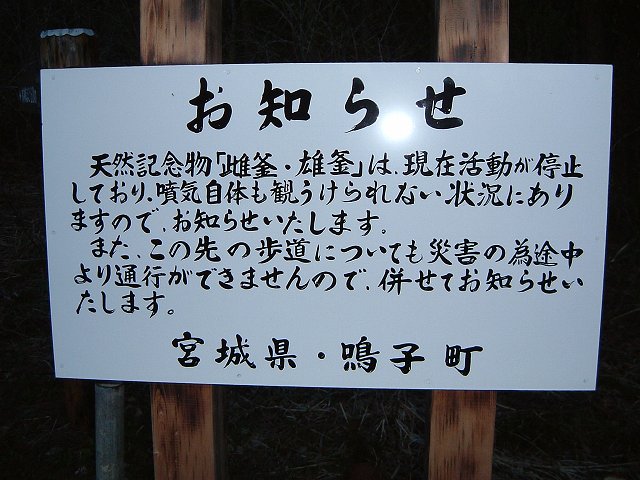 お知らせ
天然記念物「雌釜・雄釜」は、現在活動が停止
しており、噴気自体も観うけられない状況にあり
ますので、お知らせいたします。
また、この先の歩道についても災害の為途中
より通行ができませんので、併せてお知らせい
たします。
宮城県・鳴子町